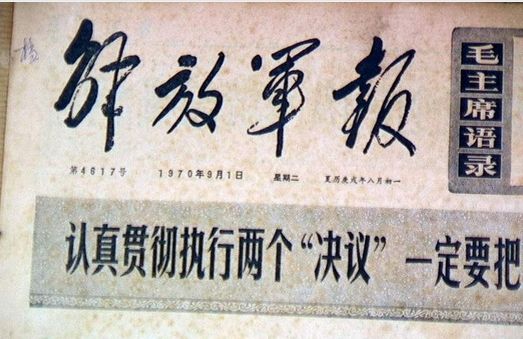 解放军报
毛主席语录
第4617号 1970年9月1日 星期二 夏历庚戌年八月初一
认真贯彻执行两个“决议” 一定要把